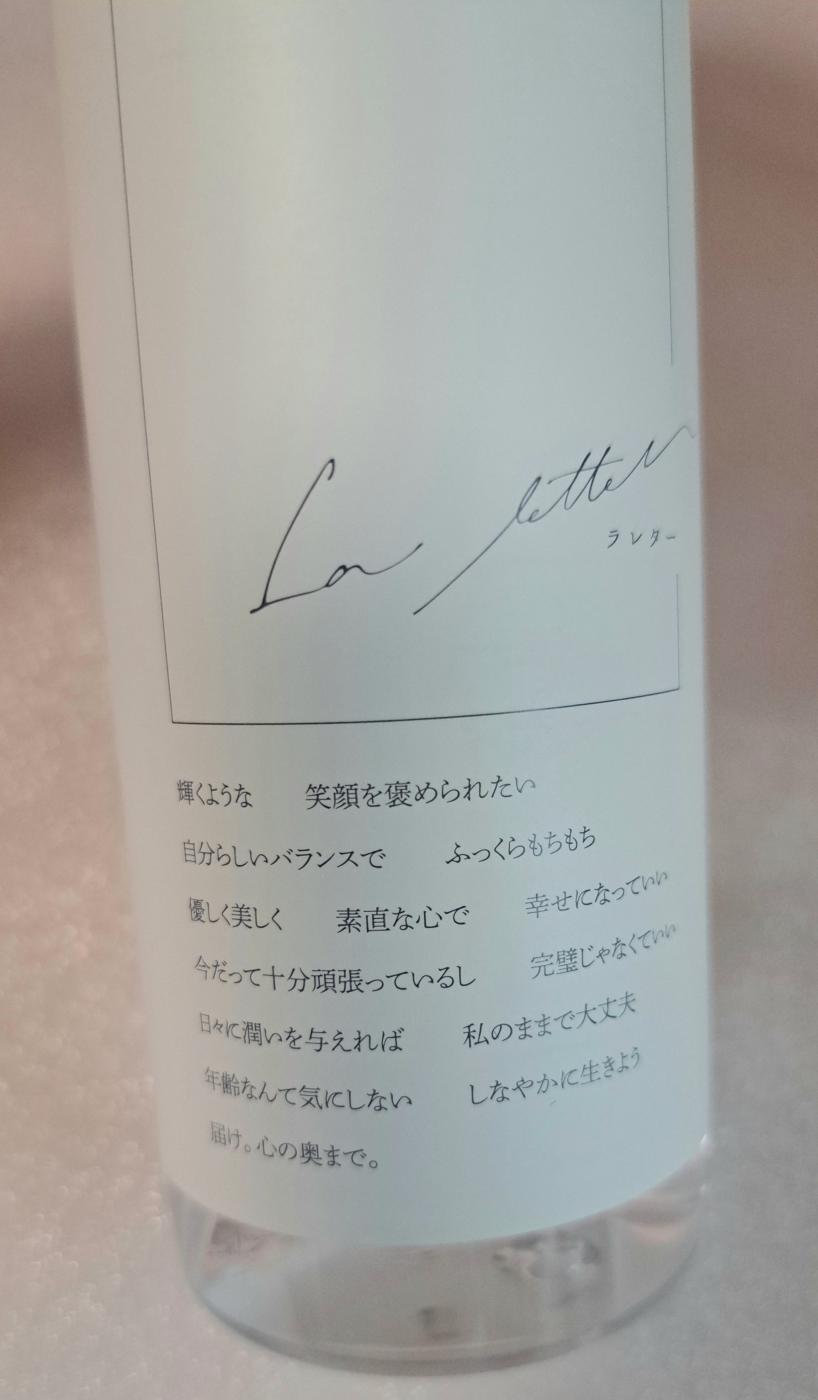 La letter
ラレター
輝くような　笑顔を褒められたい
自分らしいバランスで　ふっくらもちもち
優しく美しく　素直な心で　幸せになっていい
今だって十分頑張っているし　完璧じゃなくていい
日々に潤いを与えれば　私のままで大丈夫
年齢なんて気にしない　しなやかに生きよう
届け。心の奥まで。